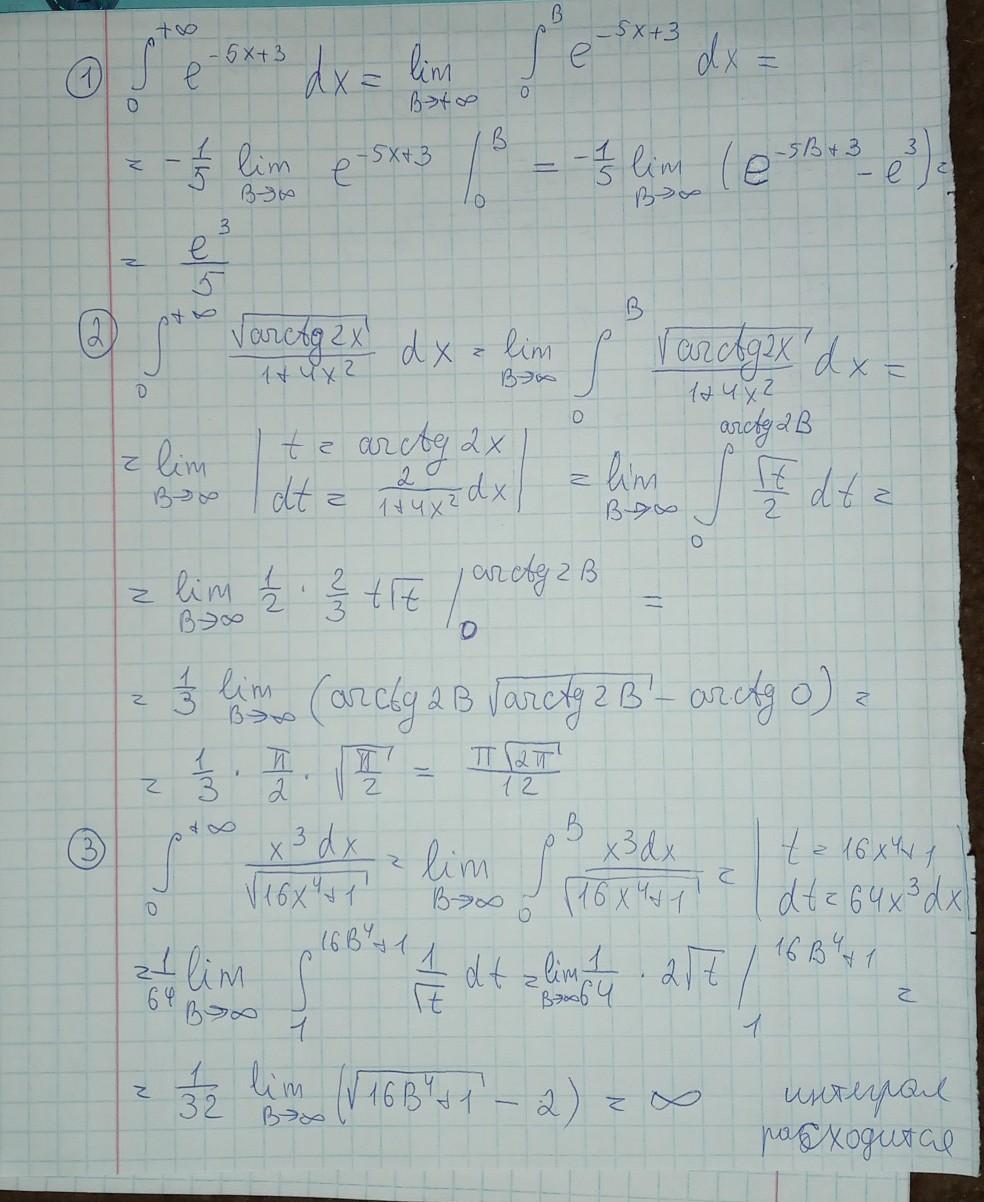 ① ∫₀^{+∞} e^{-5x+3} dx = lim_{B→+∞} ∫₀^{B} e^{-5x+3} dx =
= -1/5 lim_{B→∞} e^{-5x+3} |₀^{B} = -1/5 lim_{B→∞} (e^{-5B+3} - e³) =
= e³/5
② ∫₀^{+∞} √(arctg 2x)/(1+4x²) dx = lim_{B→∞} ∫₀^{B} √(arctg 2x)/(1+4x²) dx =
= lim_{B→∞} | t = arctg 2x ; dt = 2/(1+4x²) dx | = lim_{B→∞} ∫₀^{arctg 2B} √t/2 dt =
= lim_{B→∞} 1/2 · 2/3 t√t |₀^{arctg 2B} =
= 1/3 lim_{B→∞} (arctg 2B √(arctg 2B) - arctg 0) =
= 1/3 · π/2 · √(π/2) = π√(2π)/12
③ ∫₀^{+∞} x³dx/√(16x⁴+1) = lim_{B→∞} ∫₀^{B} x³dx/√(16x⁴+1) = | t = 16x⁴+1 ; dt = 64x³dx |
= 1/64 lim_{B→∞} ∫₁^{16B⁴+1} 1/√t dt = lim_{B→∞} 1/64 · 2√t |₁^{16B⁴+1} =
= 1/32 lim_{B→∞} (√(16B⁴+1) - 2) = ∞ интеграл
расходится